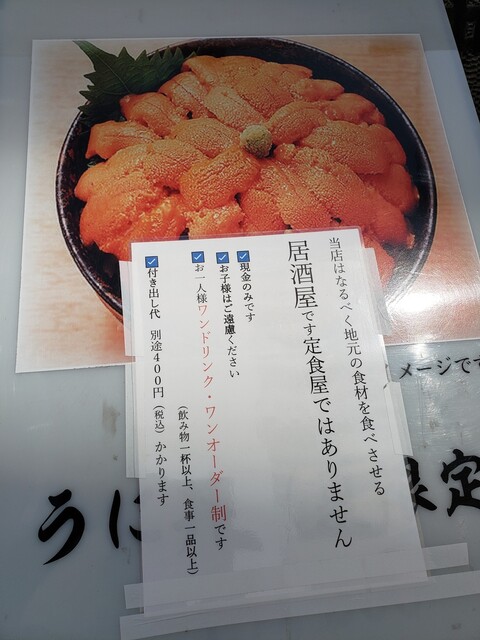 当店はなるべく地元の食材を食べさせる
居酒屋です定食屋ではありません
現金のみです
お子様はご遠慮ください
お一人様ワンドリンク・ワンオーダー制です
(飲み物一杯以上、食事一品以上)
付き出し代 別途400円(税込)かかります
メージです
うに
限定